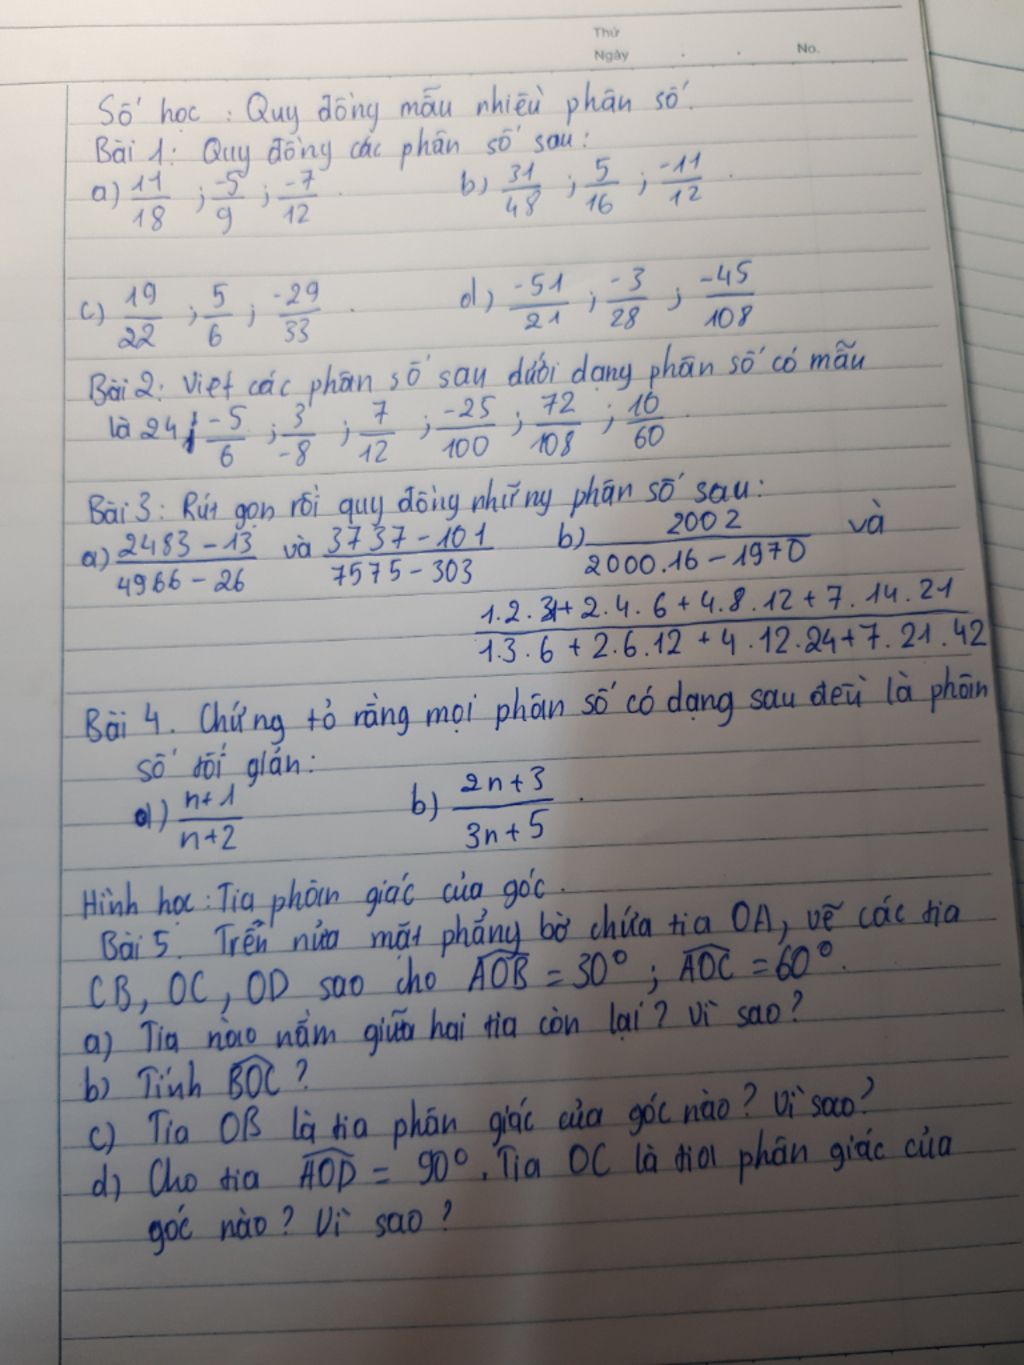 Thứ
Ngày . . No.
Số học : Quy đồng mẫu nhiều phân số.
Bài 1: Quy đồng các phân số sau:
a) 11/18 ; -5/9 ; -7/12 . b) 31/48 ; 5/16 ; -11/12 .
c) 19/22 ; 5/6 ; -29/33 . d) -51/21 ; -3/28 ; -45/108
Bài 2: Viết các phân số sau dưới dạng phân số có mẫu
là 24; -5/6 ; 3/-8 ; 7/12 ; -25/100 ; 72/108 ; 10/60 .
Bài 3: Rút gọn rồi quy đồng những phân số sau:
a) 2483 - 13/4966 - 26 và 3737 - 101/7575 - 303 b) 2002/2000.16 - 1970 và
1.2.3 + 2.4.6 + 4.8.12 + 7.14.21/1.3.6 + 2.6.12 + 4.12.24 + 7.21.42
Bài 4. Chứng tỏ rằng mọi phân số có dạng sau đều là phân
số tối giản:
a) n+1/n+2 b) 2n+3/3n+5 .
Hình học: Tia phân giác của góc.
Bài 5. Trên nửa mặt phẳng bờ chứa tia OA, vẽ các tia
CB, OC, OD sao cho AOB = 30° ; AOC = 60°.
a) Tia nào nằm giữa hai tia còn lại? Vì sao?
b) Tính BOC ?
c) Tia OB là tia phân giác của góc nào? Vì sao?
d) Cho tia AOD = 90°. Tia OC là tia phân giác của
góc nào? Vì sao?